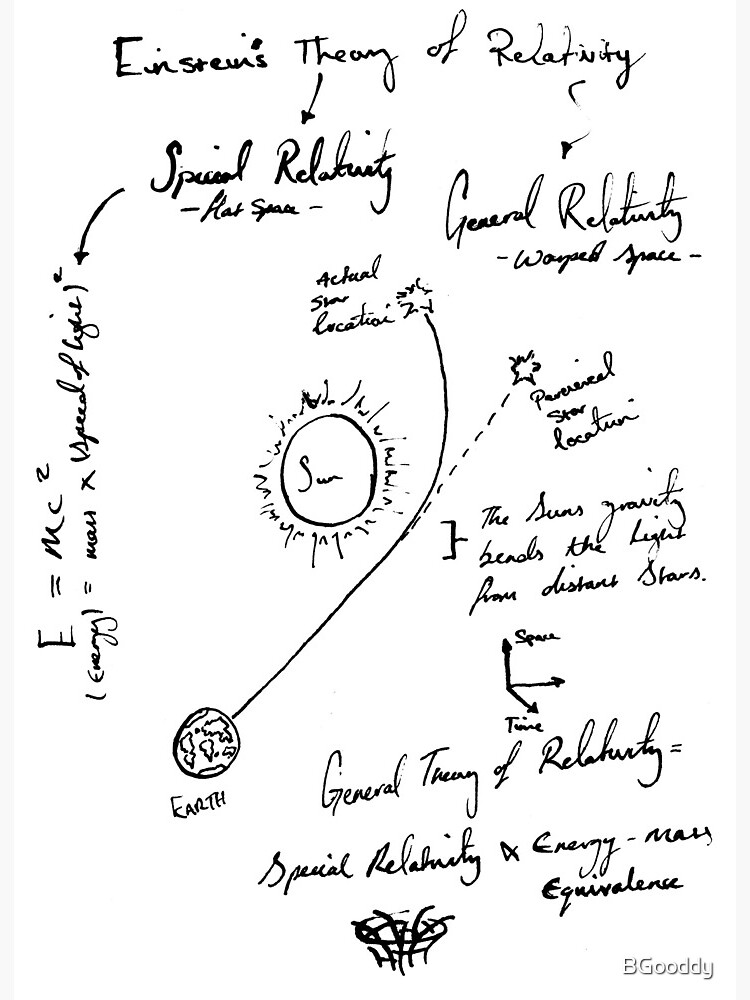 Einstein's Theory of Relativity
Special Relativity
- flat space -
General Relativity
- Warped Space -
E = mc²
(Energy) = mass x (speed of light)²
Actual
Star
Location
Perceived
Star
Location
Sun
The Suns gravity
bends the light
from distant Stars.
Space
Time
EARTH
General Theory of Relativity =
Special Relativity & Energy - mass
Equivalence
BGooddy